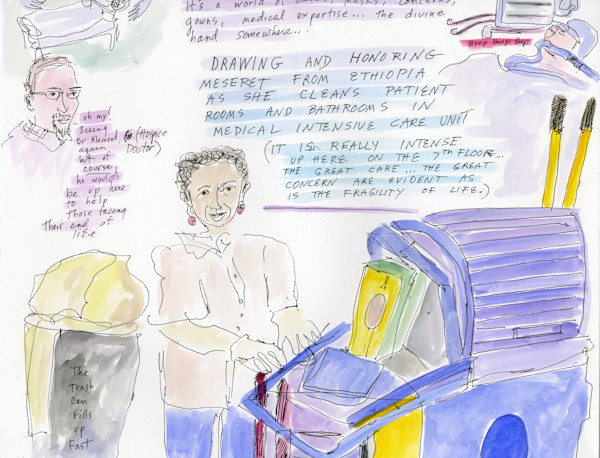 It's a world of masks, concerns,
gowns, medical expertise... The divine
hand somewhere...
Beep Beep Beep
DRAWING AND HONORING
MESERET FROM ETHIOPIA
AS SHE CLEANS PATIENT
ROOMS AND BATHROOMS IN
MEDICAL INTENSIVE CARE UNIT
(IT IS REALLY INTENSE
UP HERE ON THE 7TH FLOOR...
THE GREAT CARE... THE GREAT
CONCERN ARE EVIDENT AS
IS THE FRAGILITY OF LIFE.)
oh my!
Seeing
Dr (Hospice
again Doctor)
of
course
he would
be up here
to help
those facing
their end of
life
The
Trash
Can
Fills
up
Fast